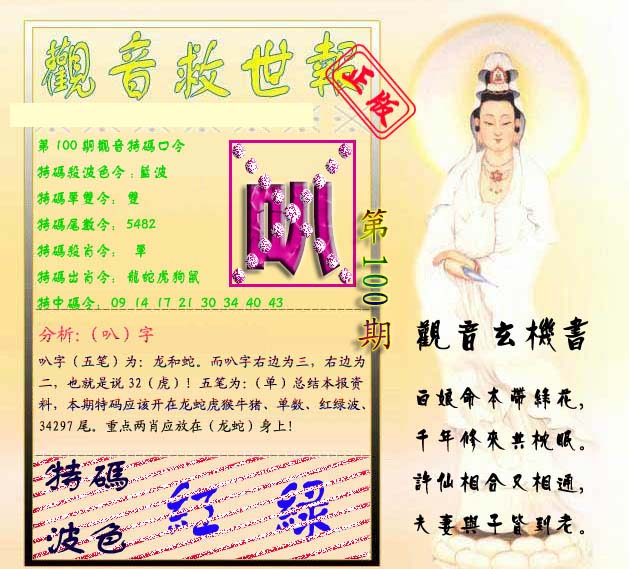 觀音救世報
正版
第100期觀音特碼口令
特碼殺波色令:藍波
特碼單雙令: 雙
特碼尾數令: 5482
特碼殺肖令: 單
特碼出肖令: 龍蛇虎狗鼠
特中碼令: 09 14 17 21 30 34 40 43
叭
第100期
分析:(叭)字
叭字(五笔)为:龙和蛇。而叭字右边为三,右边为
二,也就是说32(虎)!五笔为:(单)总结本报资
料,本期特码应该开在龙蛇虎猴牛猪、单数、红绿波、
34297尾。重点两肖应放在(龙蛇)身上!
特碼
波色
紅 綠
觀音玄機書
百娘命本帶綠花,
千年修來共枕眠。
許仙相合又相通,
夫妻與子皆到老。